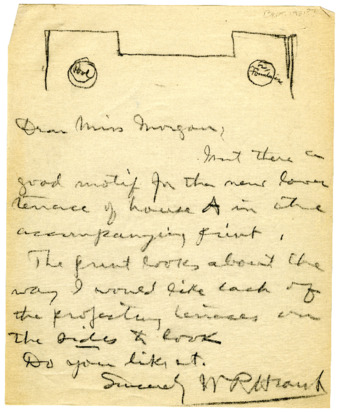 Pool
or Fountain
Dear Miss Morgan,
Isnt there a
good motif for the new lower
terrace of house A in the
accompanying print.
The print looks about the
way I would like each of
the projecting terraces on
the sides to look
Do you like it.
Sincerely W R Hearst